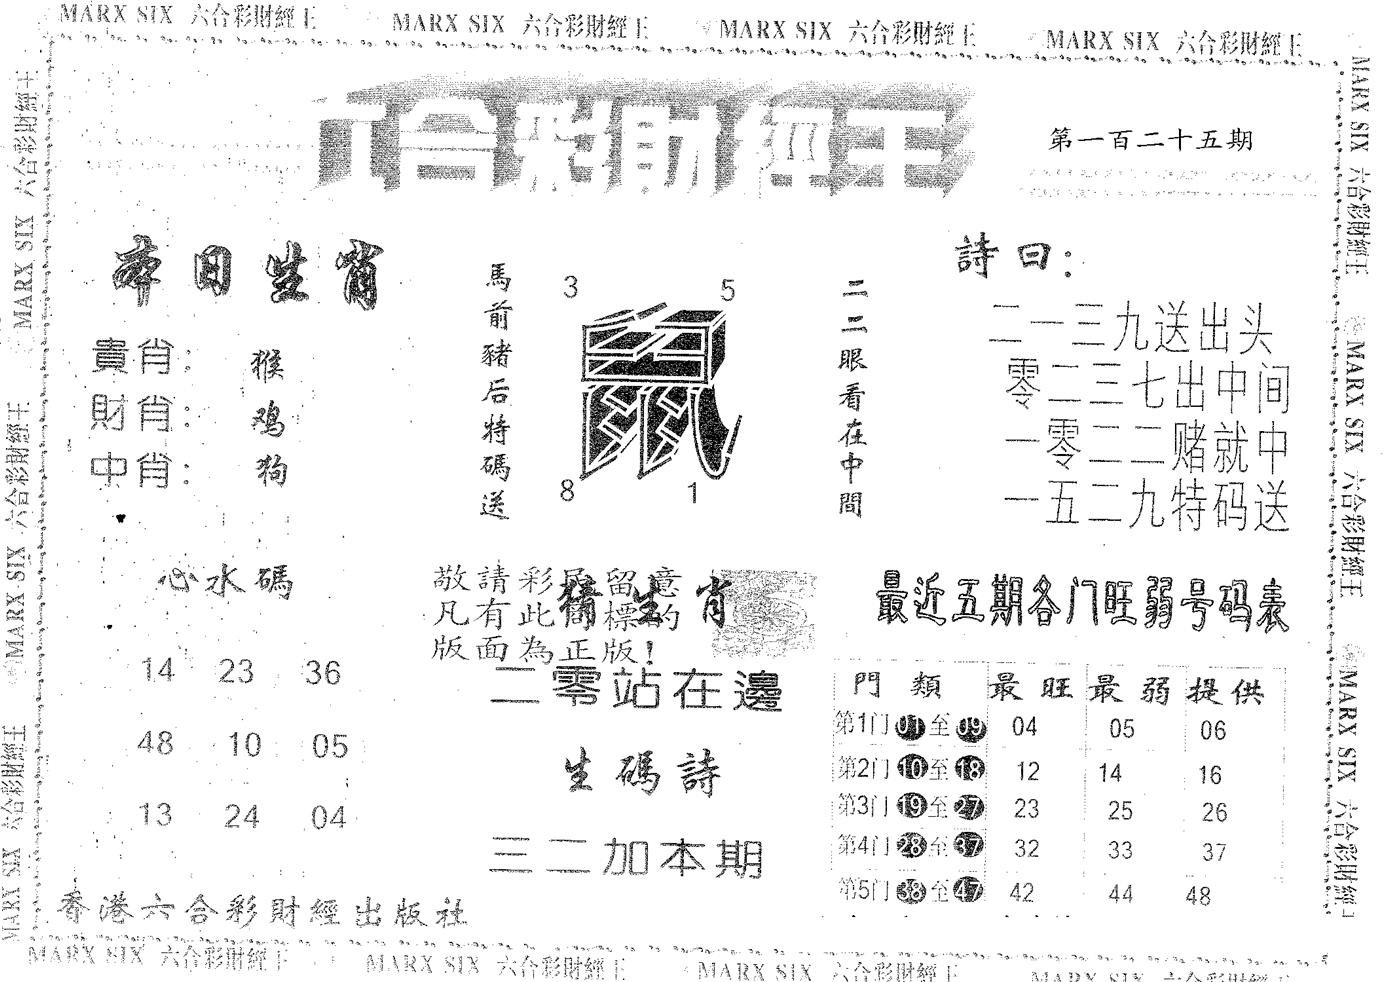 MARX SIX 六合彩財經王 MARX SIX 六合彩財經王 MARX SIX 六合彩財經王 MARX SIX 六合彩財經王
六合彩財經王
第一百二十五期
本日生肖
貴肖: 猴
財肖: 鸡
中肖: 狗
馬前豬后特碼送
3 5
鼠
8 1
二二眼看在中間
詩曰:
二一三九送出头
零二三七出中间
一零二二赌就中
一五二九特码送
心水碼
14 23 36
48 10 05
13 24 04
敬請彩民留意
凡有此商標的
版面為正版!
猜生肖
二零站在邊
生碼詩
三二加本期
最近五期各门旺弱号码表
門類 最旺 最弱 提供
第1门 01 至 09 04 05 06
第2门 10 至 18 12 14 16
第3门 19 至 27 23 25 26
第4门 28 至 37 32 33 37
第5门 38 至 47 42 44 48
香港六合彩財經出版社
MARX SIX 六合彩財經王 MARX SIX 六合彩財經王 MARX SIX 六合彩財經王 MARX SIX 六合彩財經
MARX SIX 六合彩財經王 MARX SIX 六合彩財經王 MARX SIX 六合彩財經王
MARX SIX 六合彩財經王 MARX SIX 六合彩財經王 MARX SIX 六合彩財經王